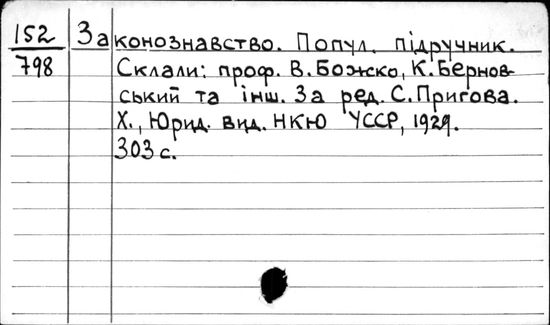 152 Законознавство. Попул. підручник.
798 Склали: проф. В. Божко, К. Бернов-
ський та інш. За ред. С. Пригова.
Х., Юрид. вид. НКЮ УССР, 1929.
303 с.